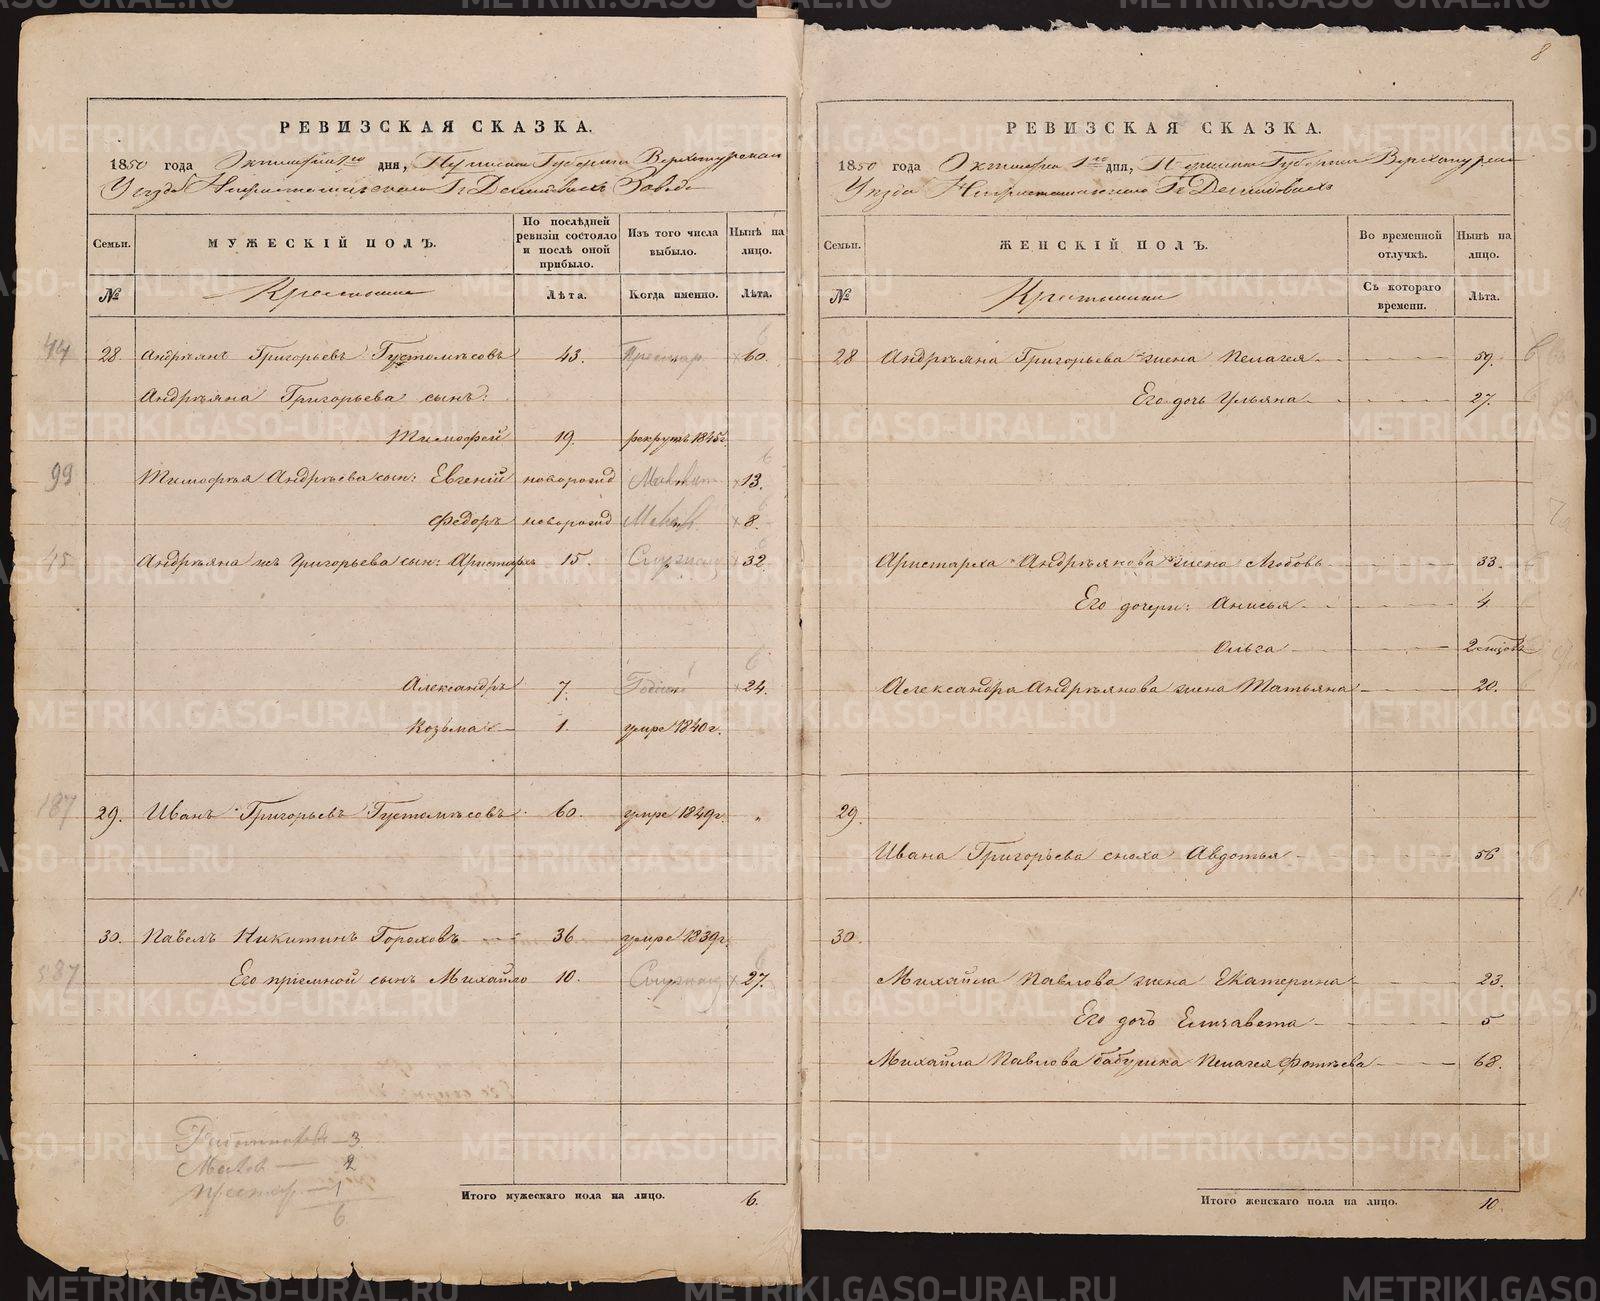 РЕВИЗСКАЯ СКАЗКА.
1850 года Октября 1го дня, Пермской Губернии Верхотурскаго
Уезда Гг Демидовыхъ Завода
Семьи. МУЖЕСКІЙ ПОЛЪ. По послѣдней ревизіи состояло и послѣ оной прибыло. Изъ того числа выбыло. Нынѣ на лицо.
№ Крестьяне Лѣта. Когда именно. Лѣта.
44 28 Андрѣянъ Григорьевъ Густомѣсовъ 43. Престар. 60.
Андрѣяна Григорьева сынъ:
Тимофей 19. рекрутъ 1845г.
99 Тимофѣя Андрѣева сын: Евгеній новорожд 13.
Федоръ новорожд Малол. 8.
45 Андрѣяна жъ Григорьева сын: Аристархъ 15. 32.
Александръ 7. 24.
Козьма 1. умре 1840г.
187 29. Иванъ Григорьевъ Густомѣсовъ 60. умре 1849г. "
30. Павелъ Никитинъ Гороховъ 36. умре 1839г.
587 Его пріемной сынъ Михайло 10. 27.
Работниковъ 3
Малол 2
Престар 1
6
Итого мужескаго пола на лицо. 6.
8
РЕВИЗСКАЯ СКАЗКА.
1850 года Октября 1го дня, Пермской Губерніи Верхотурска
Уѣзда Гг Демидовыхъ
Семьи. ЖЕНСКІЙ ПОЛЪ. Во временной отлучкѣ. Нынѣ на лицо.
№ Крестьянки Съ котораго времени. Лѣта.
28 Андрѣяна Григорьева жена Пелагея 59.
Его дочь Ульяна 27.
Аристарха Андрѣянова жена Любовь 33.
Его дочери: Анисья 4
Ольга 2 месяцовъ
Александра Андрѣянова жена Татьяна 20.
29.
Ивана Григорьева сноха Авдотья 56
30.
Михайла Павлова жена Екатерина 23.
Его дочь Елизавета 5
Михайла Павлова бабушка Пелагея Фотѣева 68.
Итого женскаго пола на лицо. 10.
METRIKI.GASO-URAL.RU